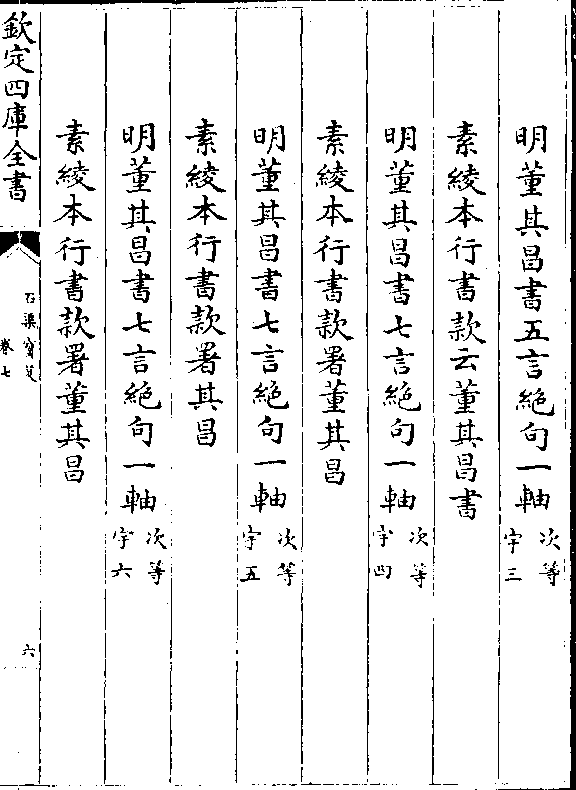 明董其昌書五言絶句一軸次等字三
素綾本行書款云董其昌書
明董其昌書七言絶句一軸次等字四
素綾本行書款署董其昌
明董其昌書七言絶句一軸次等字五
素綾本行書款署其昌
明董其昌書七言絶句一軸次等字六
素綾本行書款署董其昌
欽定四庫全書
石渠寳笈
卷七
六